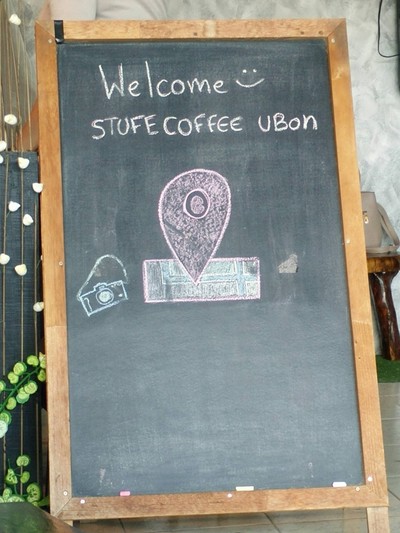 Welcome
STUFE COFFEE UBON